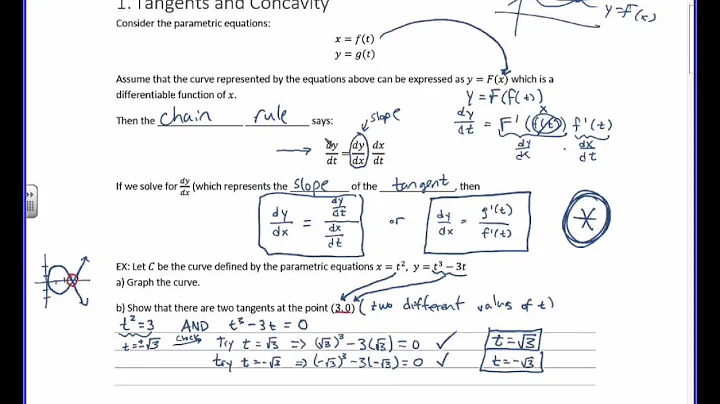 1. Tangents and Concavity
y=F(x)
Consider the parametric equations:
x = f(t)
y = g(t)
Assume that the curve represented by the equations above can be expressed as y = F(x) which is a
differentiable function of x.
y = F(f(t))
Then the chain rule says:
slope
dy/dt = dy/dx · dx/dt
dy/dt = F'(f(t)) f'(t)
x
dy/dx · dx/dt
If we solve for dy/dx (which represents the slope of the tangent, then
dy/dx = dy/dt / dx/dt or dy/dx = g'(t)/f'(t)
EX: Let C be the curve defined by the parametric equations x = t², y = t³ − 3t
a) Graph the curve.
b) Show that there are two tangents at the point (3,0) (two different values of t)
t² = 3 AND t³ - 3t = 0
t = ±√3 check try t = √3 => (√3)³ - 3(√3) = 0 ✓ t = √3
try t = -√3 => (-√3)³ - 3(-√3) = 0 ✓ t = -√3